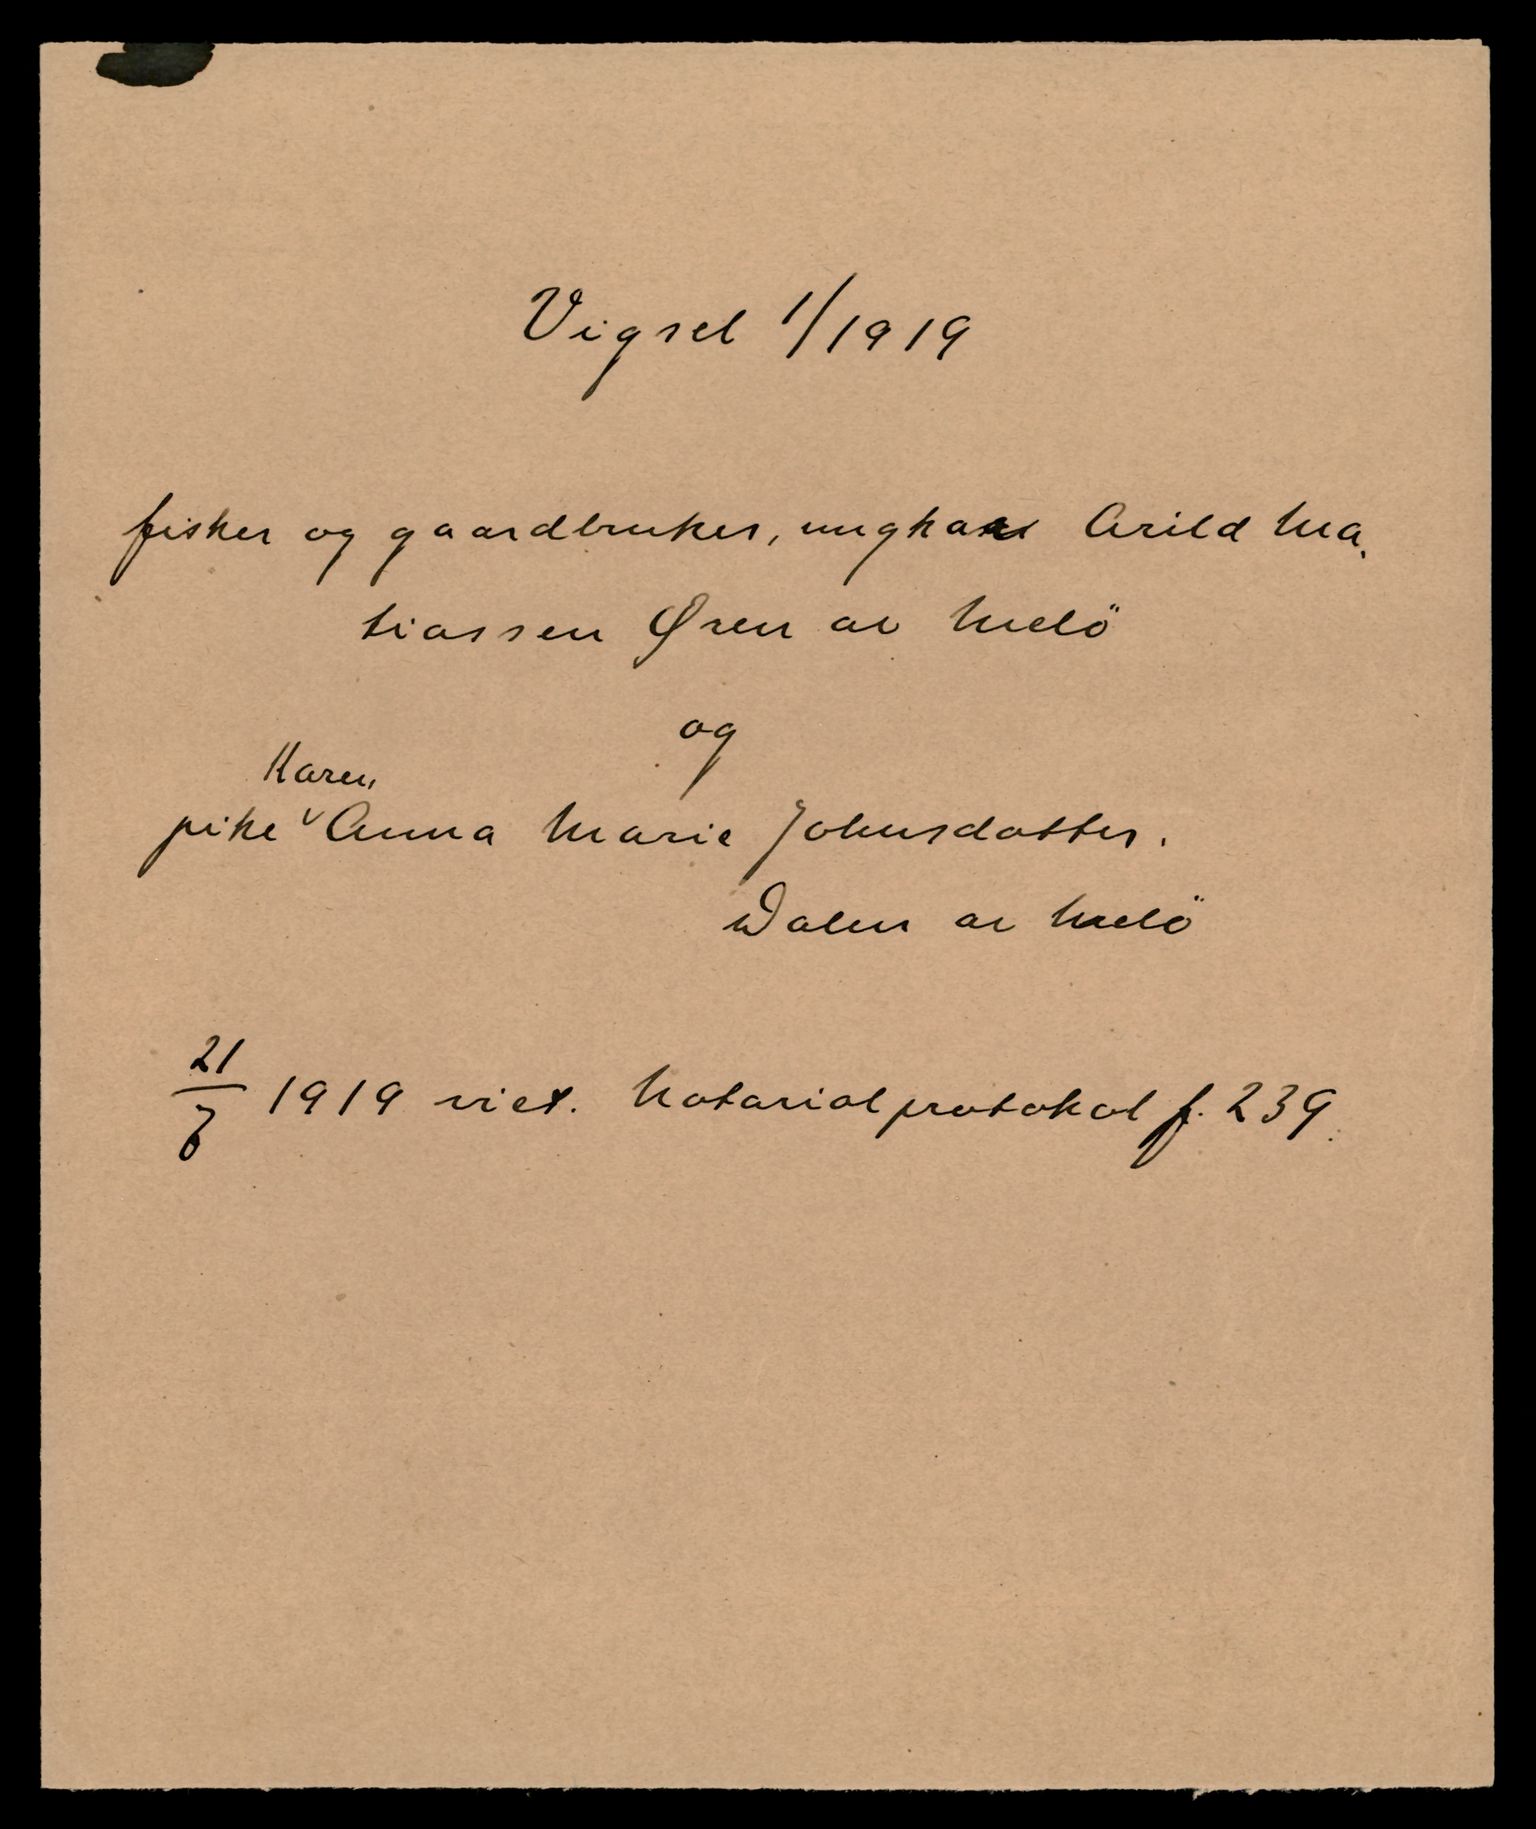 Vigsel 1/1919
fisker og gaardbruker, ungkar Arild Ma-
tiassen Øren av Melö
og
Karen
pike Anna Marie Johnsdatter.
Dalen av Melö
21/6 1919 viet. Notarialprotokol f. 239.